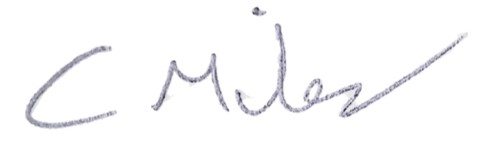 C Miles